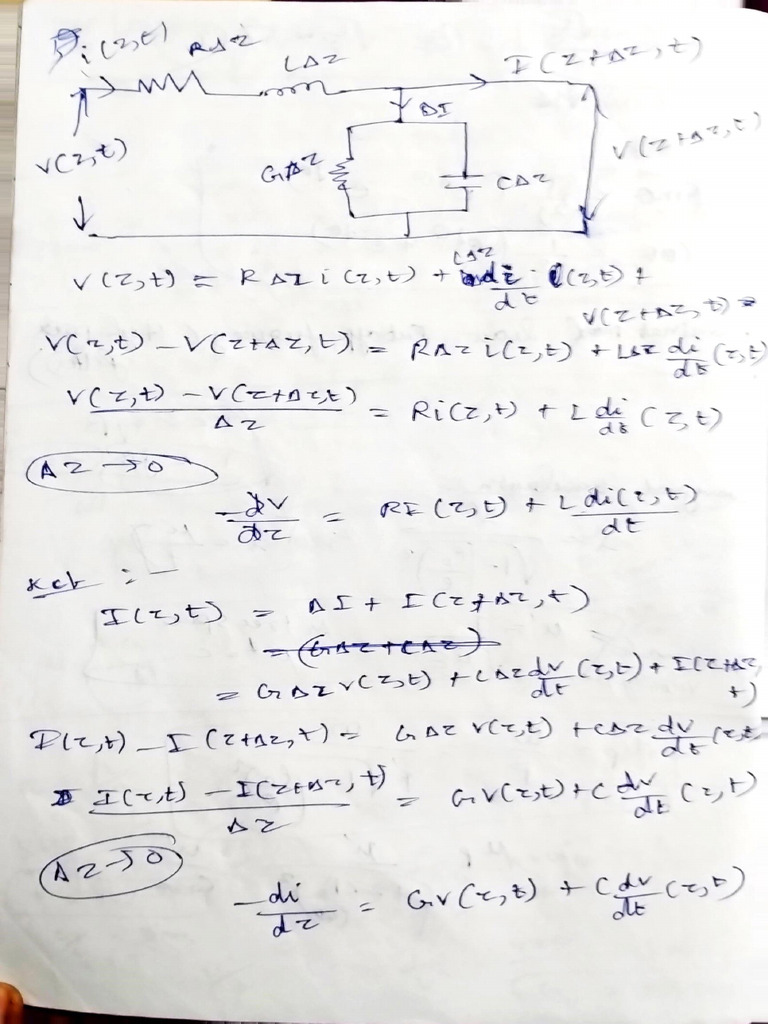 i(z,t) RΔz LΔz I(z+Δz,t)
ΔI
V(z,t) GΔz CΔz V(z+Δz,t)
V(z,t) = RΔz i(z,t) + LΔz di/dt (z,t) +
V(z+Δz,t)
V(z,t) - V(z+Δz,t) = RΔz i(z,t) + LΔz di/dt (z,t)
V(z,t) - V(z+Δz,t) / Δz = Ri(z,t) + L di/dt (z,t)
Δz → 0
-dV/dz = RI(z,t) + L di(z,t)/dt
KCL :-
I(z,t) = ΔI + I(z+Δz,t)
= (GΔz + CΔz)
= GΔz V(z,t) + CΔz dv/dt (z,t) + I(z+Δz,
t)
I(z,t) - I(z+Δz,t) = GΔz V(z,t) + CΔz dv/dt (z,t)
I(z,t) - I(z+Δz,t) / Δz = GV(z,t) + C dv/dt (z,t)
Δz → 0
-di/dz = GV(z,t) + C dv/dt (z,t)